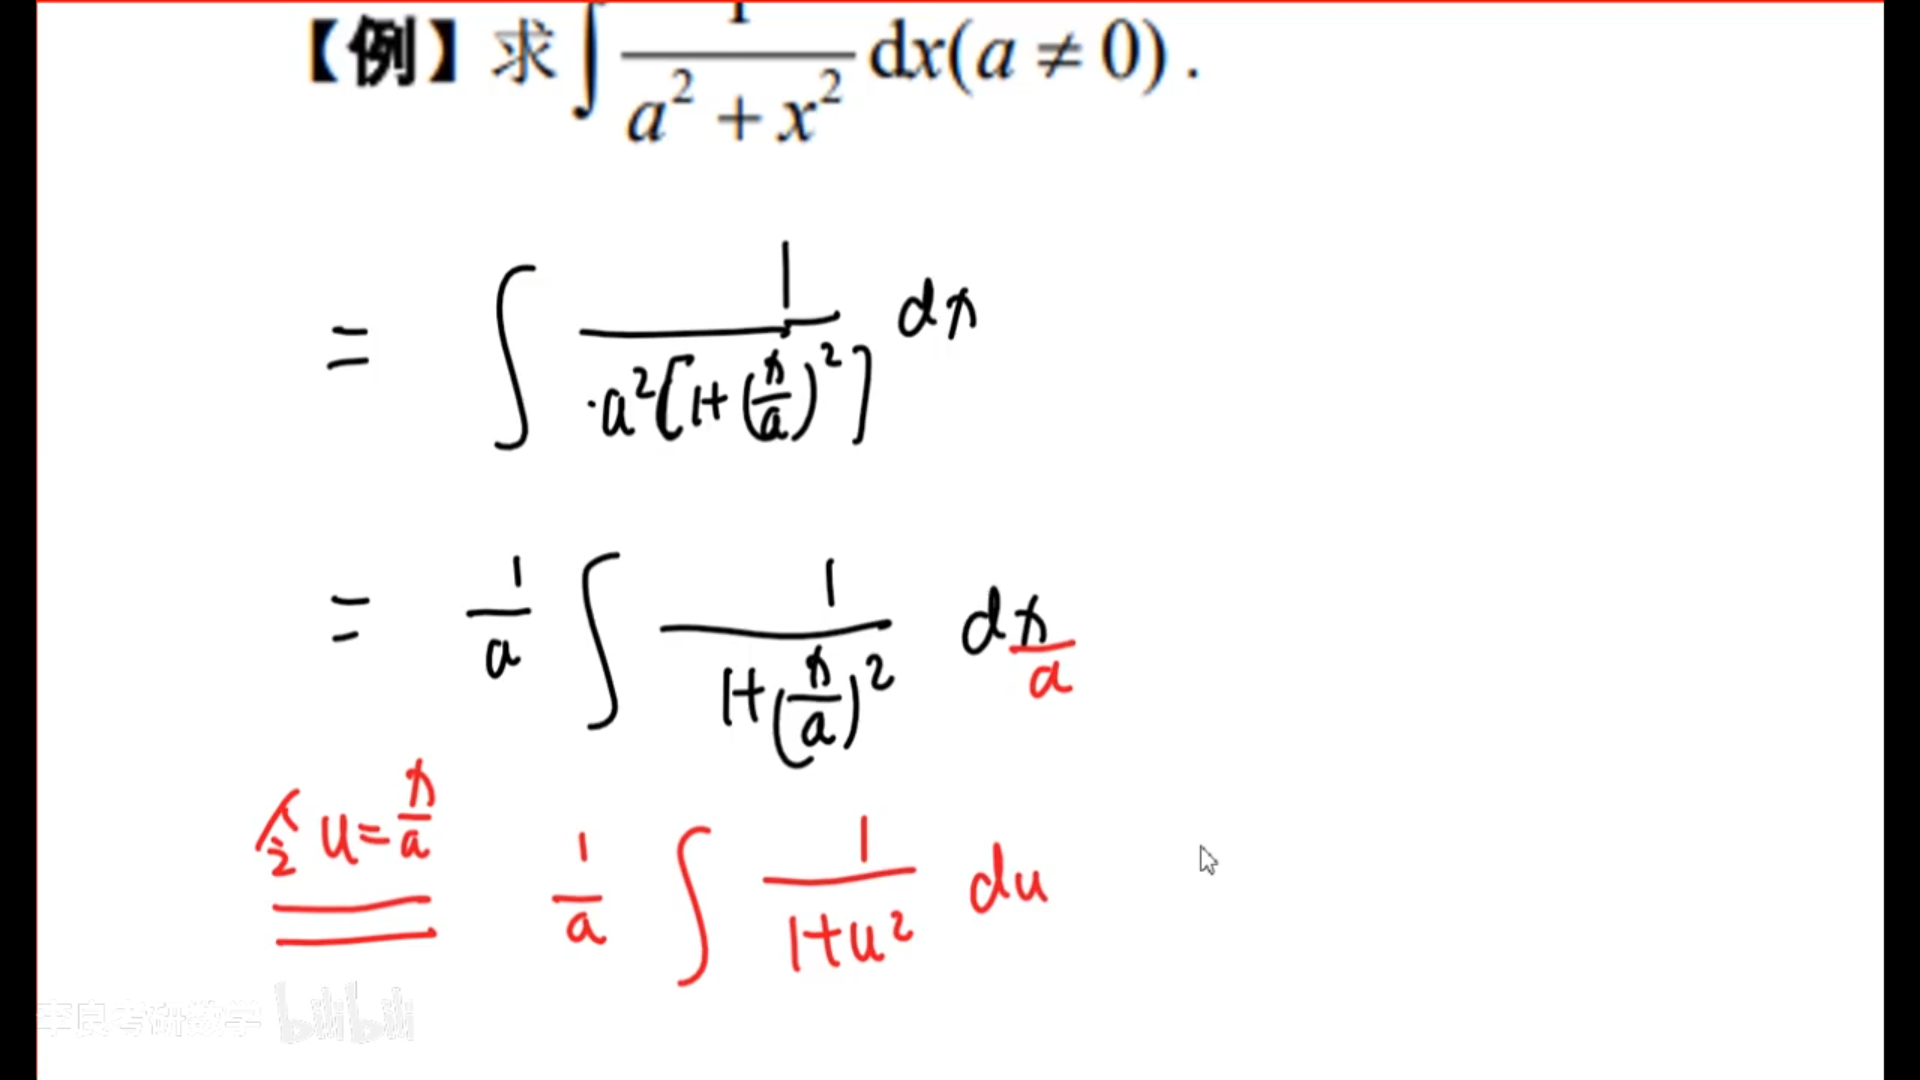 【例】求∫ 1/(a²+x²) dx(a≠0).
= ∫ 1/(a²[1+(x/a)²]) dx
= 1/a ∫ 1/(1+(x/a)²) d x/a
令 u=x/a
= 1/a ∫ 1/(1+u²) du
李良考研数学 bilibili